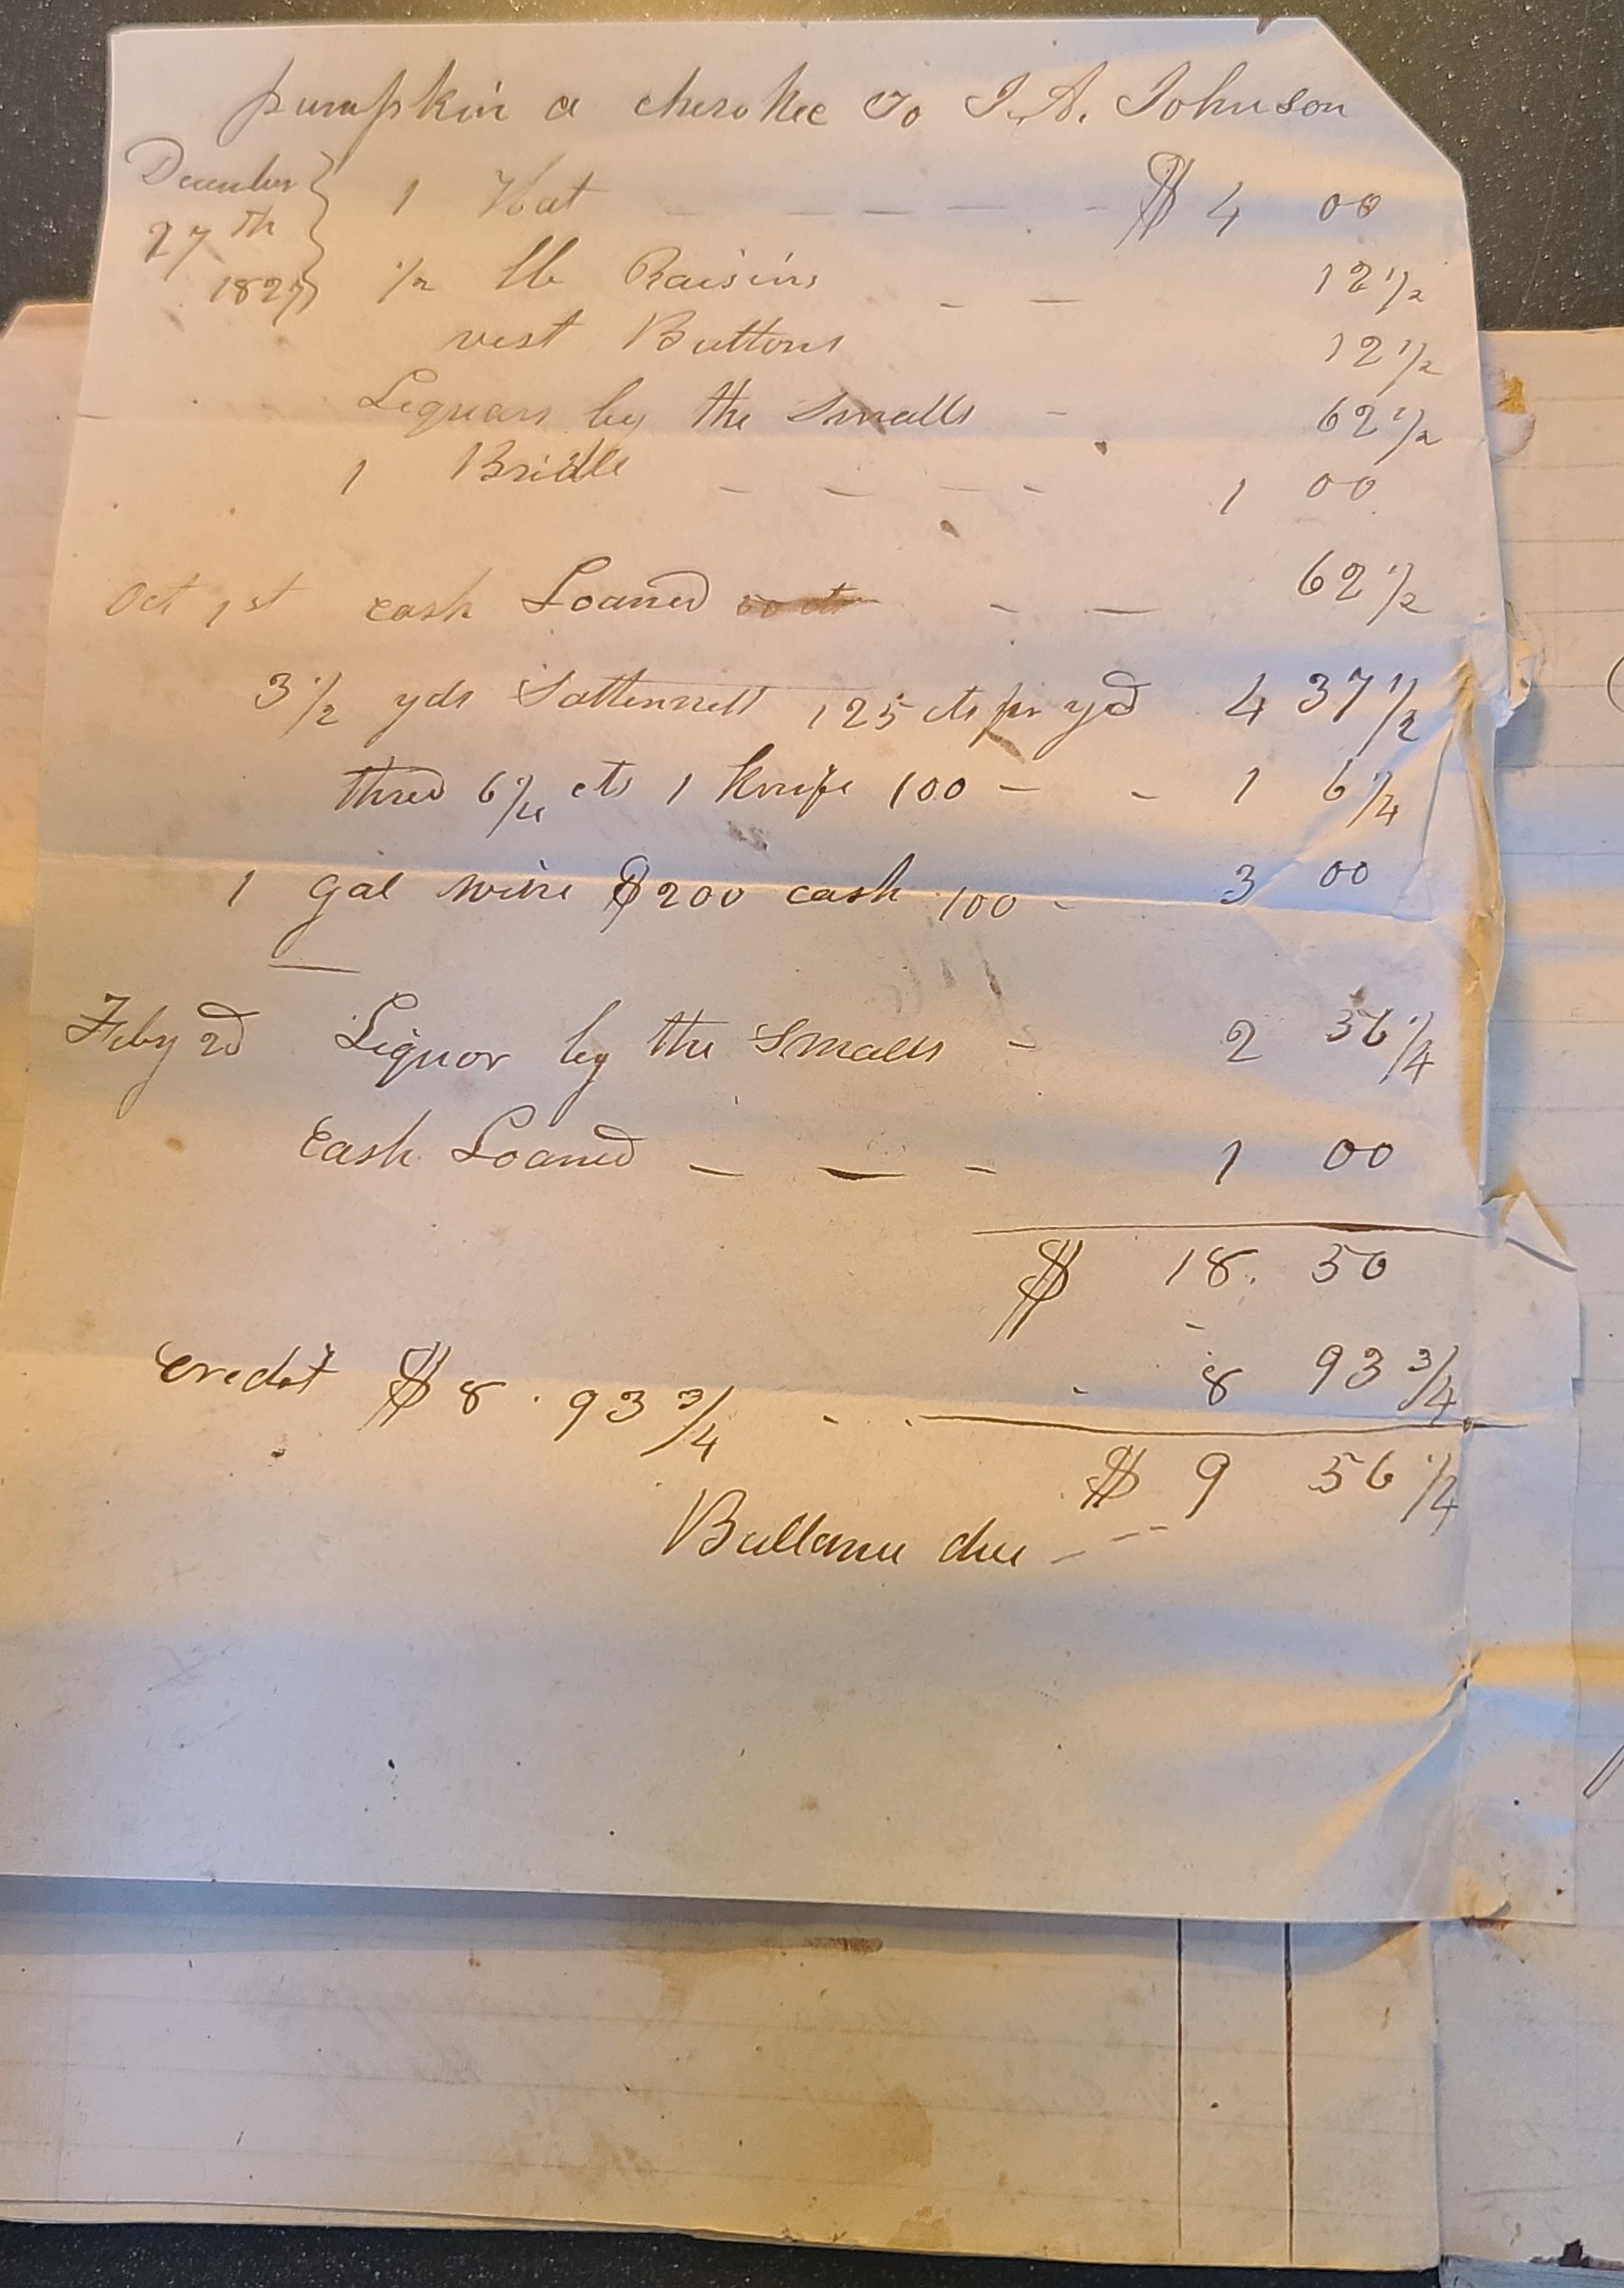 pumpkin a cherokee To I. A. Johnson
December 27th 1827 } 1 Hat - - - - - $ 4 00
1/2 lb Raisins - - 12 1/2
vest Buttons 12 1/2
Liquors by the Smalls - 62 1/2
1 Bridle - - - - 1 00
Oct 1st cash Loaned - - 62 1/2
3 1/2 yds Sattennett 125 cts pr yd 4 37 1/2
thred 6 1/4 cts 1 knife 100 - - 1 6 1/4
1 gal wine $200 cash 100 - 3 00
Feby 2d Liquor by the Smalls - 2 56 1/4
Cash Loaned - - - 1 00
$ 18. 50
Credit $8. 93 3/4 - - 8 93 3/4
$ 9 56 1/4
Ballance due - -